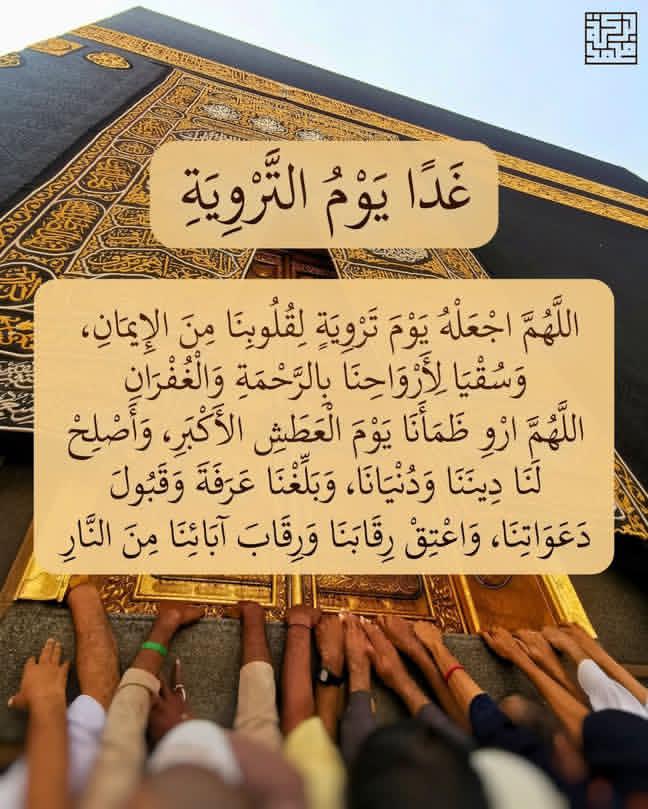 غَدًا يَوْمُ التَّرْوِيَةِ
اللَّهُمَّ اجْعَلْهُ يَوْمَ تَرْوِيَةٍ لِقُلُوبِنَا مِنَ الإِيمَانِ،
وَسُقْيَا لِأَرْوَاحِنَا بِالرَّحْمَةِ وَالْغُفْرَانِ
اللَّهُمَّ ارْوِ ظَمَأَنَا يَوْمَ الْعَطَشِ الأَكْبَرِ، وَأَصْلِحْ
لَنَا دِينَنَا وَدُنْيَانَا، وَبَلِّغْنَا عَرَفَةَ وَقَبُولَ
دَعَوَاتِنَا، وَاعْتِقْ رِقَابَنَا وَرِقَابَ آبَائِنَا مِنَ النَّارِ